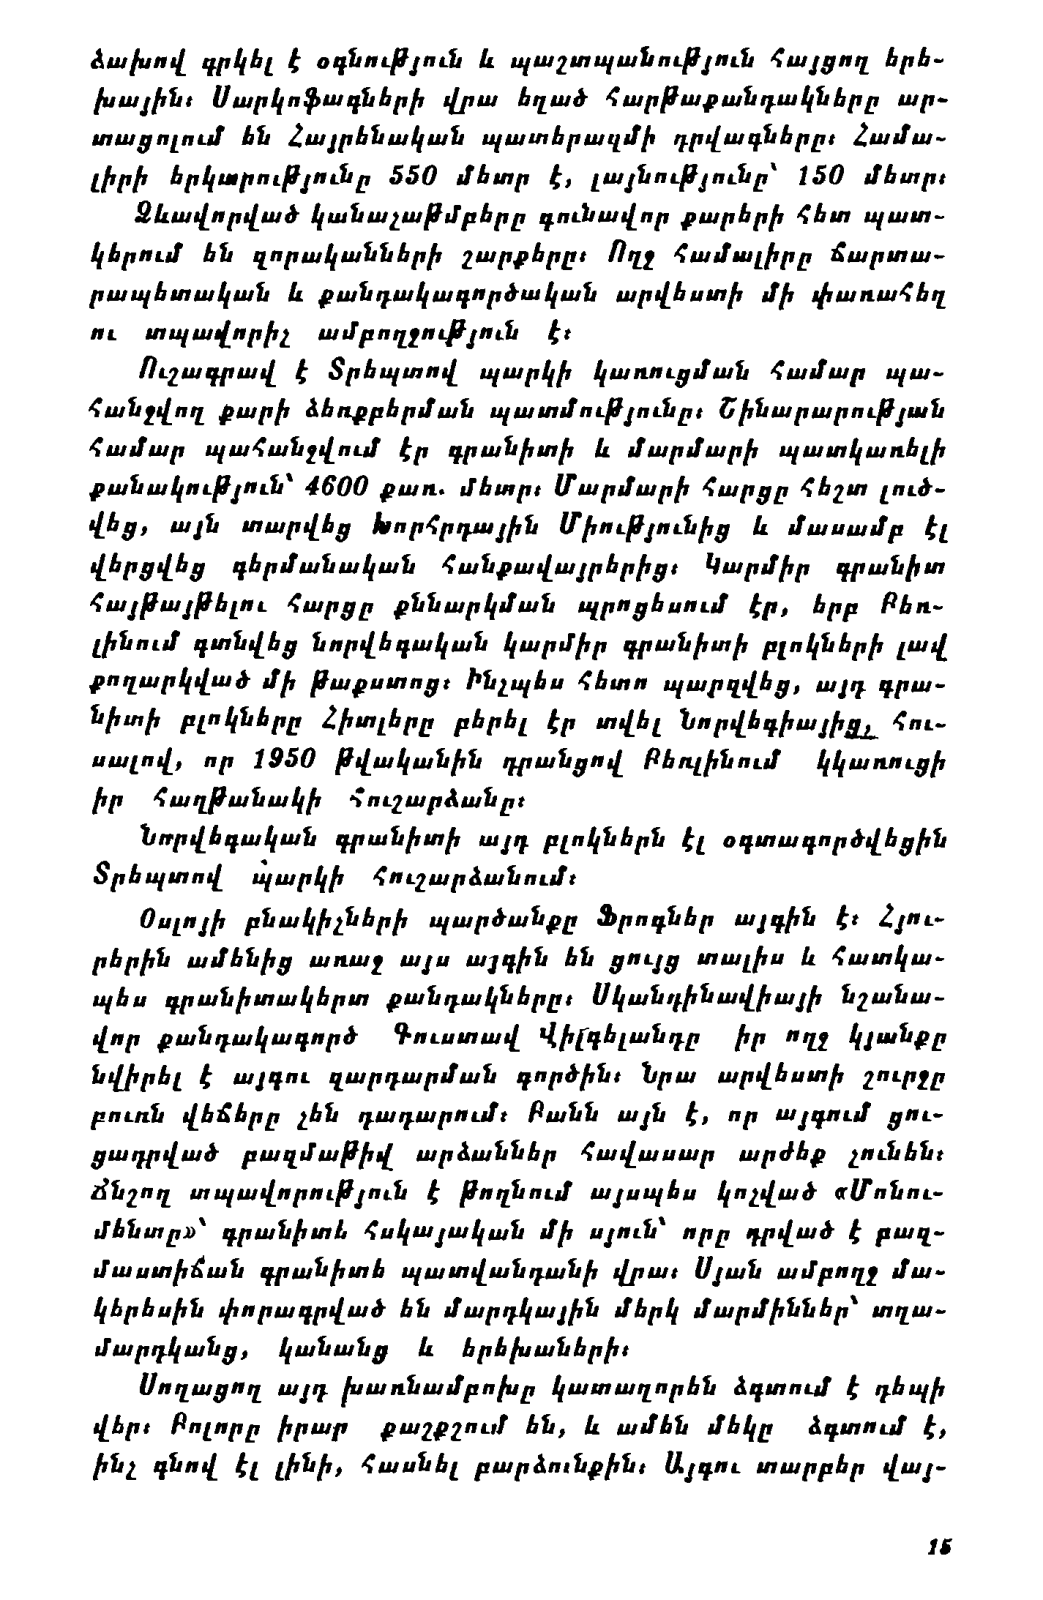 ձախով գրկել է օգնություն և պաշտպանություն հայցող երե-
խային։ Սարկոֆագների վրա եղած հարթաքանդակները ար-
տացոլում են Հայրենական պատերազմի դրվագները։ Համա-
լիրի երկարությունը 550 մետր է, լայնությունը՝ 150 մետր։
Ձևավորված կանաչաթմբերը գունավոր քարերի հետ պատ-
կերում են զորականների շարքերը։ Ողջ համալիրը ճարտա-
րապետական և քանդակագործական արվեստի մի փառահեղ
ու տպավորիչ ամբողջություն է։
Ուշագրավ է Տրեպտով պարկի կառուցման համար պա-
հանջվող քարի ձեռքբերման պատմությունը։ Շինարարության
համար պահանջվում էր գրանիտի և մարմարի պատկառելի
քանակություն՝ 4600 քառ. մետր։ Մարմարի հարցը հեշտ լուծ-
վեց, այն տարվեց Խորհրդային Միությունից և մասամբ էլ
վերցվեց գերմանական հանքավայրերից։ Կարմիր գրանիտ
հայթայթելու հարցը քննարկման պրոցեսում էր, երբ Բեռ-
լինում գտնվեց նորվեգական կարմիր գրանիտի բլոկների լավ
քողարկված մի թաքստոց։ Ինչպես հետո պարզվեց, այդ գրա-
նիտի բլոկները Հիտլերը բերել էր տվել Նորվեգիայից, հու-
սալով, որ 1950 թվականին դրանցով Բեռլինում կկառուցի
իր հաղթանակի հուշարձանը։
Նորվեգական գրանիտի այդ բլոկներն էլ օգտագործվեցին
Տրեպտով պարկի հուշարձանում։
Օսլոյի բնակիչների պարծանքը Ֆրոգներ այգին է։ Հյու-
րերին ամենից առաջ այս այգին են ցույց տալիս և հատկա-
պես գրանիտակերտ քանդակները։ Սկանդինավիայի նշանա-
վոր քանդակագործ Գուստավ Վիլգելանդը իր ողջ կյանքը
նվիրել է այգու զարդարման գործին։ Նրա արվեստի շուրջը
բուռն վեճերը չեն դադարում։ Բանն այն է, որ այգում ցու-
ցադրված բազմաթիվ արձաններ հավասար արժեք չունեն։
Ճնշող տպավորություն է թողնում այսպես կոչված «Մոնու-
մենտը»՝ գրանիտե հսկայական մի սյուն՝ որը դրված է բազ-
մաստիճան գրանիտե պատվանդանի վրա։ Սյան ամբողջ մա-
կերեսին փորագրված են մարդկային մերկ մարմիններ՝ տղա-
մարդկանց, կանանց և երեխաների։
Սողացող այդ խառնամբոխը կատաղորեն ձգտում է դեպի
վեր։ Բոլորը իրար քաշքշում են, և ամեն մեկը ձգտում է,
ինչ գնով էլ լինի, հասնել բարձունքին։ Այգու տարբեր վայ-
15